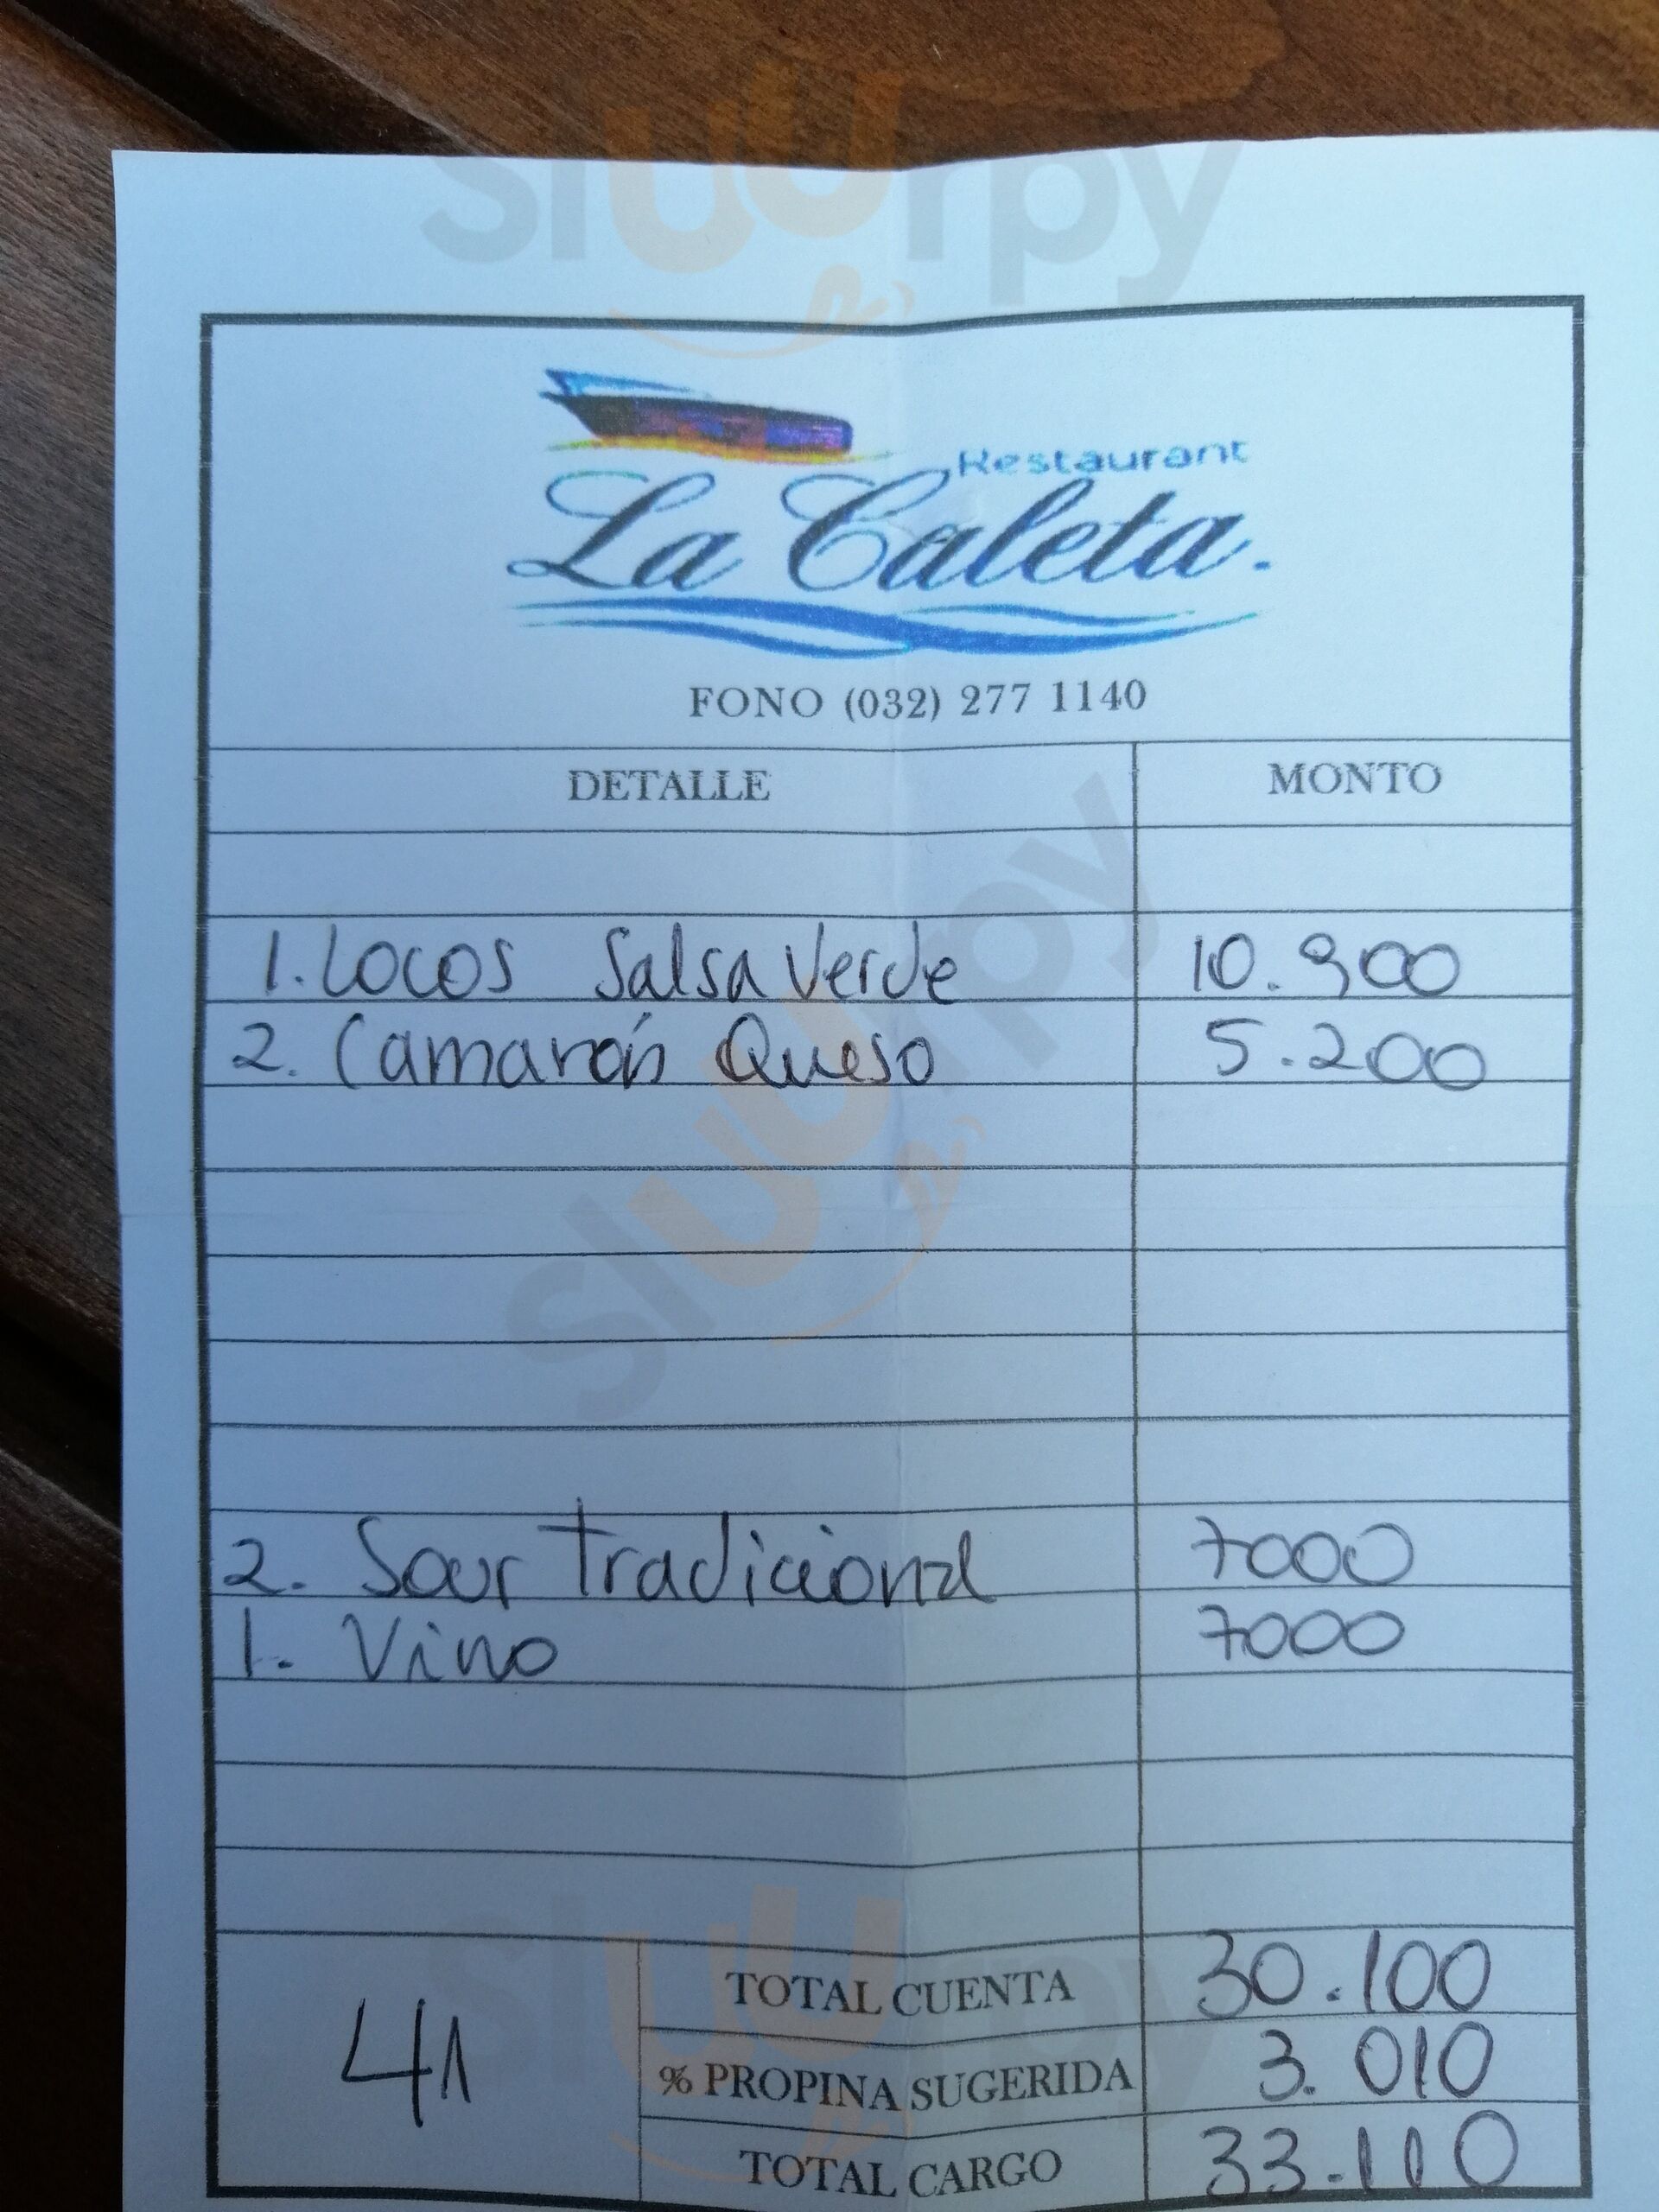 sluurpy
Restaurant
La Caleta.
FONO (032) 277 1140
DETALLE MONTO
1. Locos Salsa Verde 10.900
2. Camarón Queso 5.200
sluurpy
2. Sour Tradicional 7000
1. Vino 7000
TOTAL CUENTA 30.100
41
% PROPINA SUGERIDA 3.010
TOTAL CARGO 33.110
sluurpy